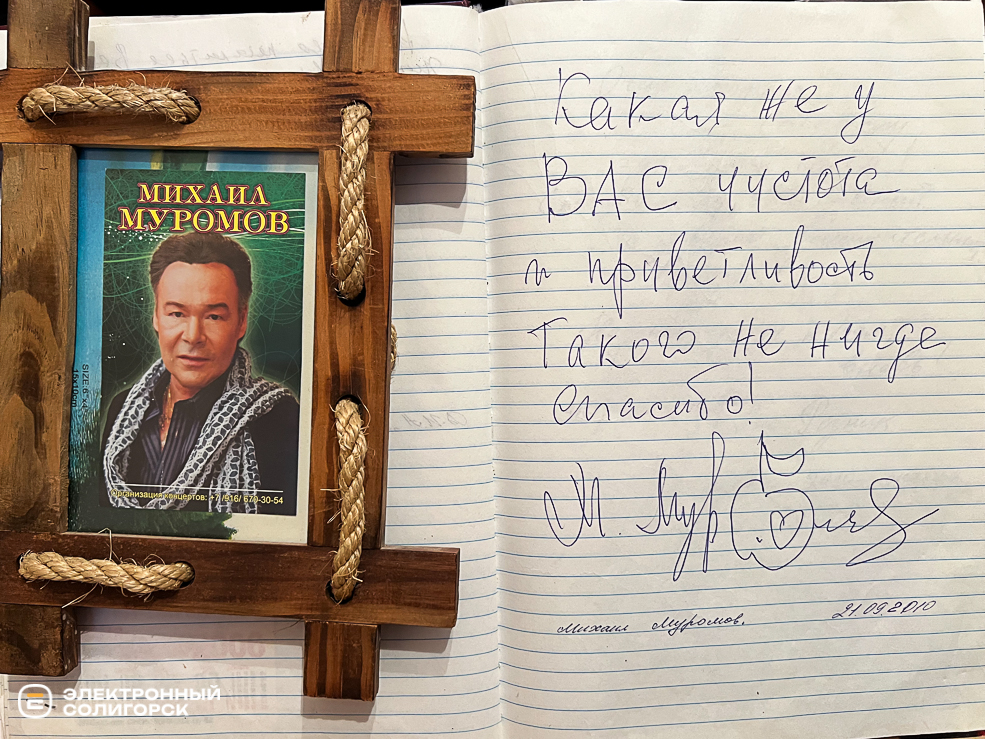 МИХАИЛ
МУРОМОВ
SIZE 6 x
15x10cm
Организация концертов: +7 /916/ 670-30-54
Какая же у
ВАС чистота
и приветливость
Такого не нигде
спасибо!
М. Муромов
Михаил Муромов. 21.09.2010
ЭЛЕКТРОННЫЙ
СОЛИГОРСК